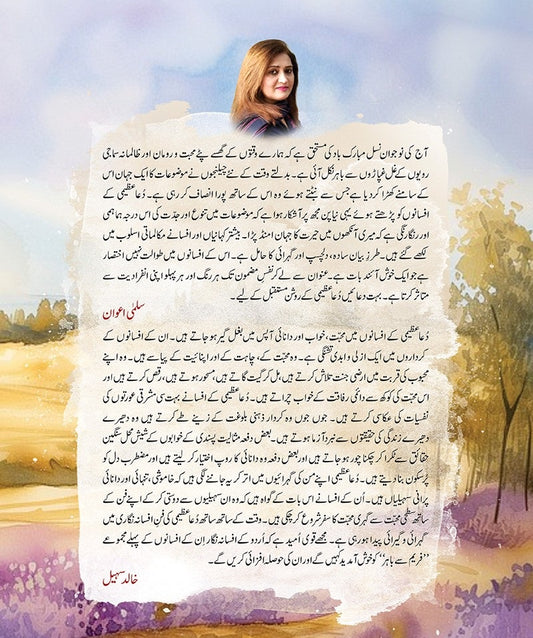 آج کی نوجوان نسل مبارک باد کی مستحق ہے کہ ہمارے وقتوں کے گھسے پٹے محبت و رومان اور ظالمانہ سماجی
رویوں کے غل غپاڑوں سے باہر نکل آئی ہے۔ بدلتے وقت کے نئے چیلنجوں نے موضوعات کا ایک جہان اس
کے سامنے کھڑا کر دیا ہے جس سے نبٹتے ہوئے وہ اس کے ساتھ پورا انصاف کر رہی ہے۔ دُعا عظیمی کے
افسانوں کو پڑھتے ہوئے یہی نیا پن مجھ پر آشکار ہوا ہے کہ موضوعات میں تنوع اور جدّت کی اس درجہ ہما ہمی
اور رنگا رنگی ہے کہ میری آنکھوں میں حیرت کا جہان امنڈ پڑا۔ بیشتر کہانیاں اور افسانے مکالماتی اسلوب میں
لکھے گئے ہیں۔ طرزِ بیان سادہ، دلچسپ اور گہرائی کا حامل ہے۔ اس کے افسانوں میں طوالت نہیں اختصار
ہے جو ایک خوش آئند بات ہے۔ عنوان سے لے کر نفسِ مضمون تک ہر رنگ اور ہر پہلو اپنی انفرادیت سے
متاثر کرتا ہے۔ بہت دعائیں دُعا عظیمی کے روشن مستقبل کے لیے۔
سلمیٰ اعوان
دُعا عظیمی کے افسانوں میں محبت، خواب اور دانائی آپس میں بغل گیر ہو جاتے ہیں۔ ان کے افسانوں کے
کرداروں میں ایک ازلی و ابدی تشنگی ہے۔ وہ محبت کے، چاہت کے اور اپنائیت کے پیاسے ہیں۔ وہ اپنے
محبوب کی قربت میں ارضی جنت تلاش کرتے ہیں، مل کر گیت گاتے ہیں، مسحور ہوتے ہیں، رقص کرتے ہیں اور
اس محبت کی کوکھ سے دائمی رفاقت کے خواب چراتے ہیں۔ دُعا عظیمی کے افسانے بہت سی مشرقی عورتوں کی
نفسیات کی عکاسی کرتے ہیں۔ جوں جوں وہ کردار ذہنی بلوغت کے زینے طے کرتے ہیں وہ دھیرے
دھیرے زندگی کی حقیقتوں سے نبرد آزما ہوتے ہیں۔ بعض دفعہ مثالیت پسندی کے خوابوں کے شیش محل سنگین
حقائق سے ٹکرا کر چکنا چور ہو جاتے ہیں اور بعض دفعہ وہ دانائی کا روپ اختیار کر لیتے ہیں اور مضطرب دل کو
پُرسکون بنا دیتے ہیں۔ دُعا عظیمی اپنے من کی گہرائیوں میں اتر کر یہ جاننے لگی ہیں کہ خاموشی، تنہائی اور دانائی
پرانی سہیلیاں ہیں۔ اُن کے افسانے اس بات کے گواہ ہیں کہ وہ ان سہیلیوں سے دوستی کر کے اپنے فن کے
ساتھ سطحی محبت سے گہری محبت کا سفر شروع کر چکی ہیں۔ وقت کے ساتھ ساتھ دُعا عظیمی کی فنِ افسانہ نگاری میں
گہرائی و گیرائی پیدا ہو رہی ہے۔ مجھے قوی اُمید ہے کہ اُردو کے افسانہ نگار اِن کے افسانوں کے پہلے مجموعے
’’فریم سے باہر‘‘ کو خوش آمدید کہیں گے اور ان کی حوصلہ افزائی کریں گے۔
خالد سہیل